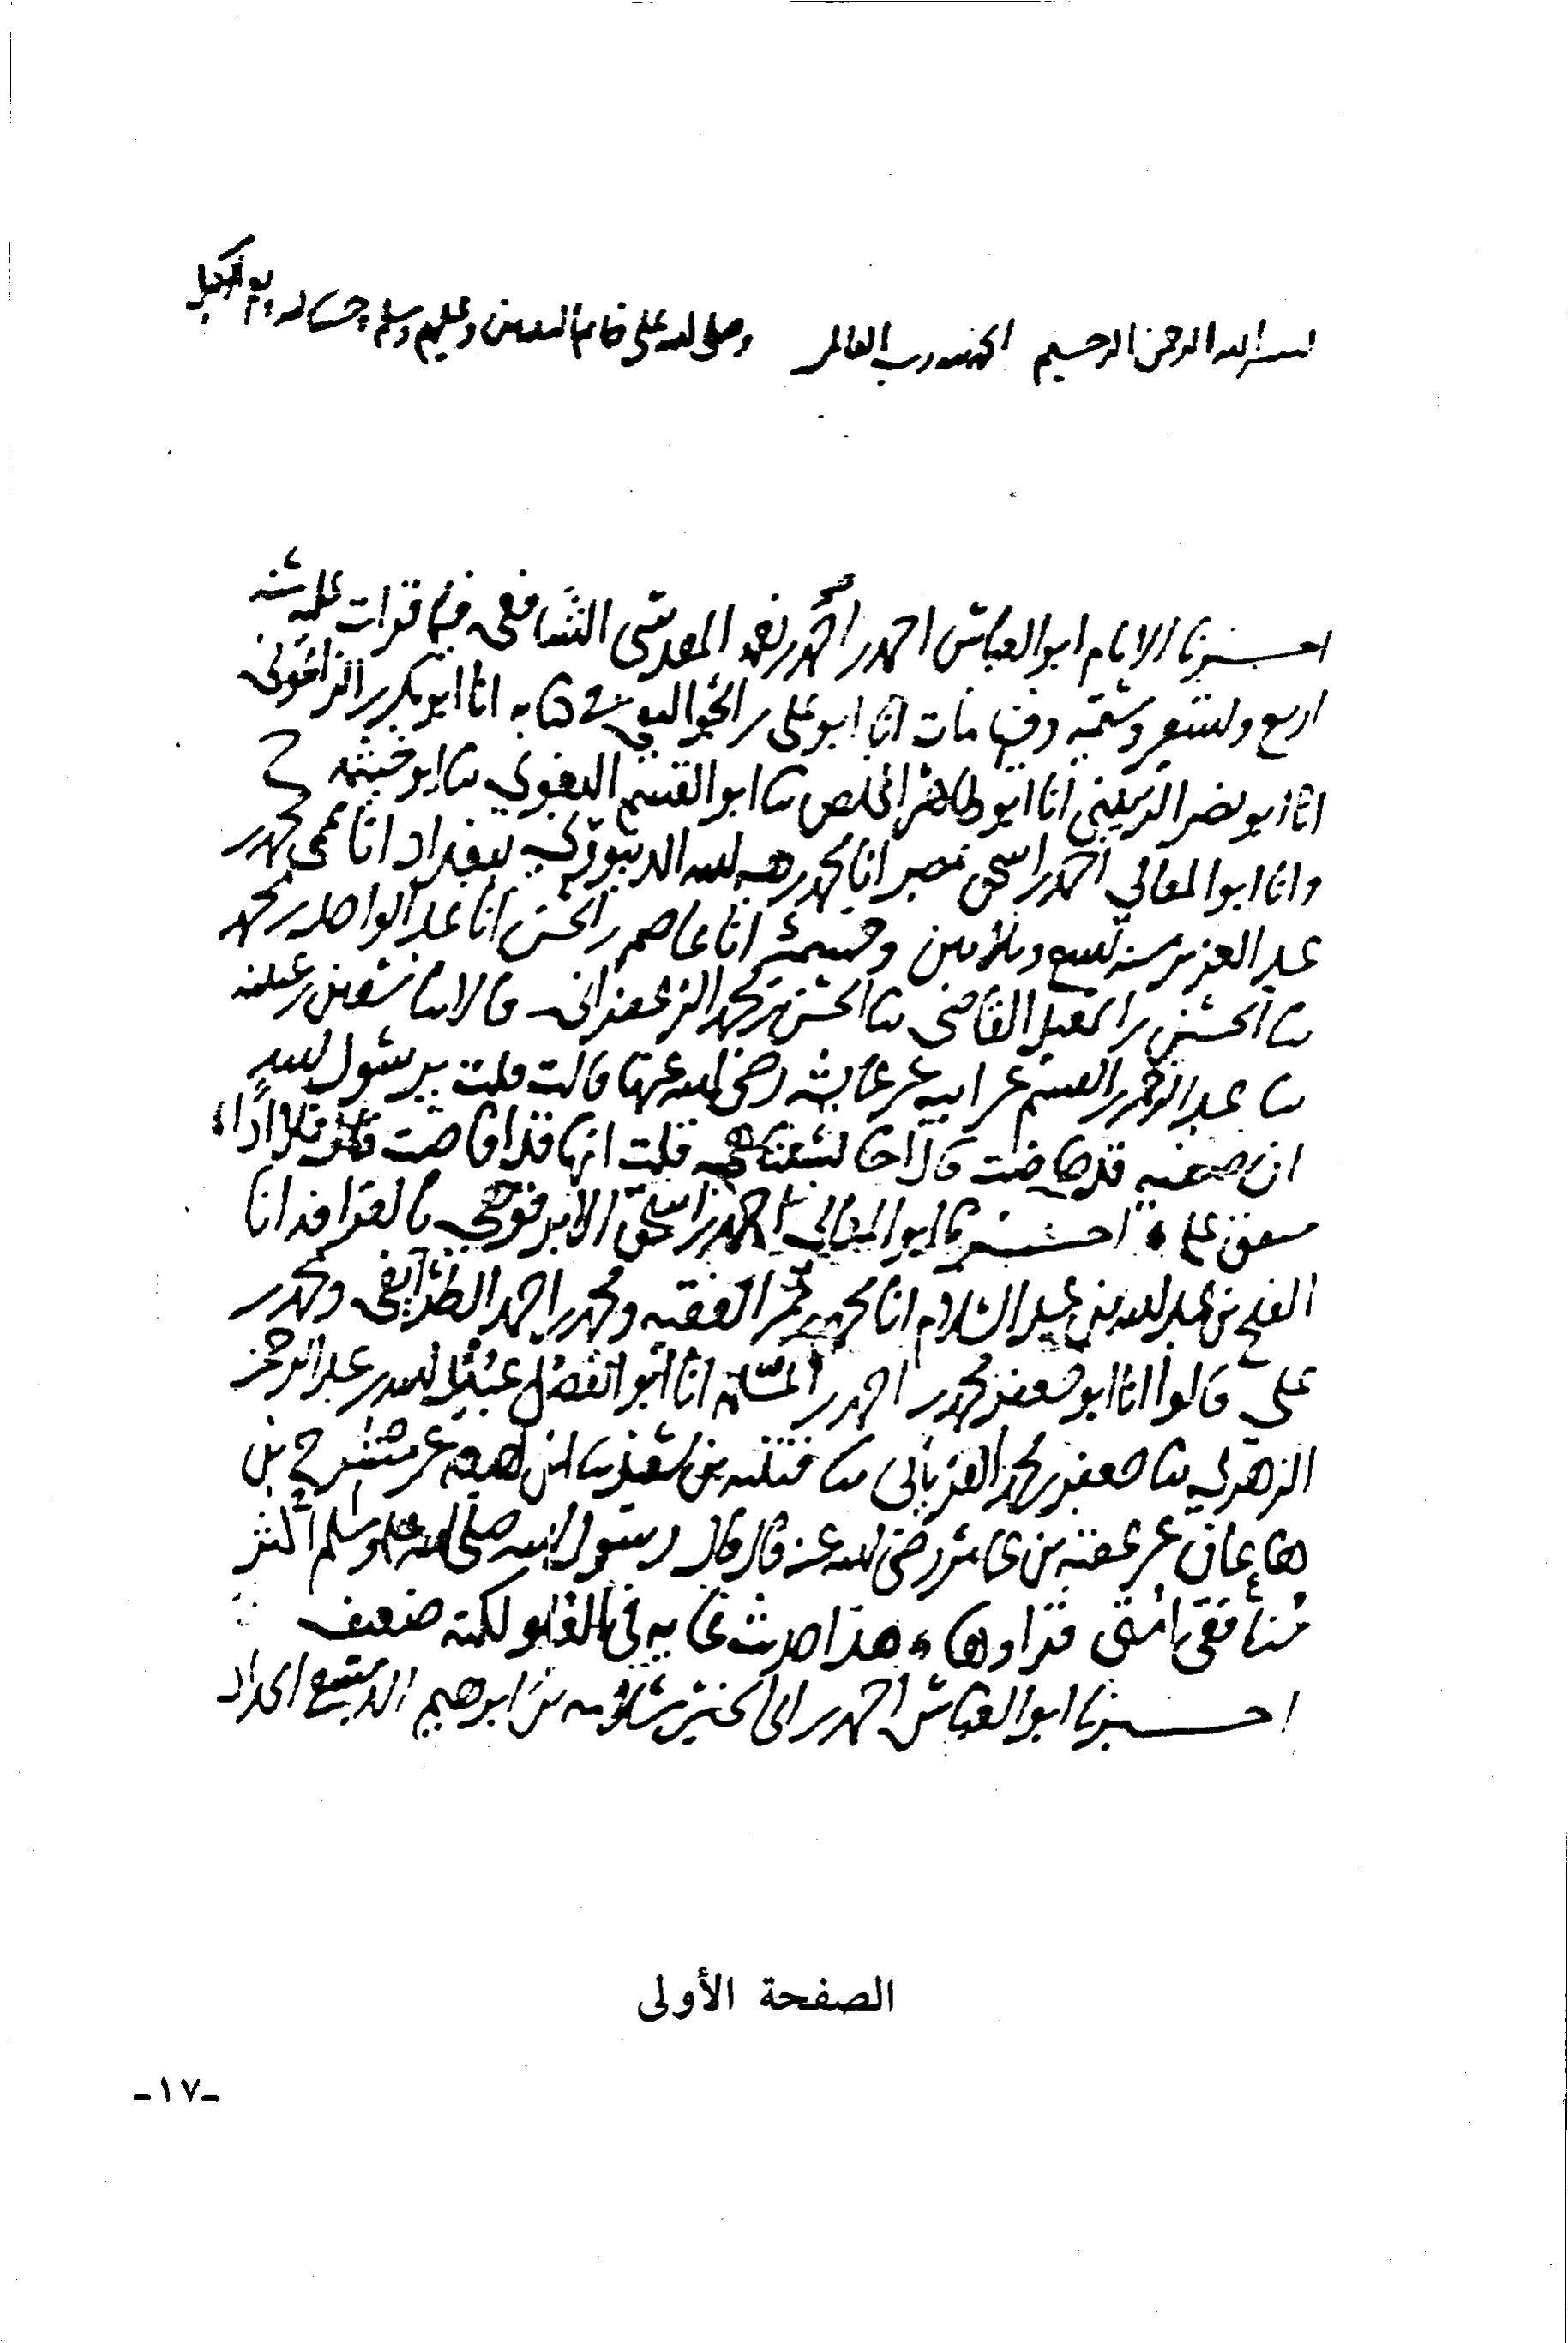 بسم الله الرحمن الرحيم الحمد لله رب العالمين وصلى الله على خاتم النبيين وعليهم وسلم حسبنا الله ونعم الوكيل
اخبرنا الامام ابو العباس احمد بن احمد بن نعمة المقدسي الشافعي فيما قرات عليه سنة
اربع وتسعين وستمئة وفيها مات انا ابو علي بن الجواليقي في كتابه انا ابو بكر بن الزاغوني
انا ابو نصر الزينبي انا ابو طاهر المخلص ثنا ابو القسم البغوي ثنا ابو خيثمة ح
وانا ابو المعالي احمد بن اسحق بمصر انا محمد بن هبة الله الدينوري ببغداد انا عمي محمد بن
عبد العزيز سنة تسع وثلاثين وخمسمئة انا عاصم بن الحسن انا عبد الواحد بن محمد
ثنا الحسين بن اسمعيل القاضي ثنا الحسن بن محمد الزعفراني قالا ثنا سفين بن عيينة
ثنا عبد الرحمن بن القسم عن ابيه عن عائشة رضي الله عنها قالت قلت يرسول الله
ان صفية قد حاضت قال احابستنا هي قلت انها قد افاضت قال فلا اذا
متفق عليه اخبرنا ابو المعالي احمد بن اسحق الابرقوهي بالقرافة انا
الفتح بن عبد الله بن عبد السلام انا محمد بن عمر الفقيه ومحمد بن احمد الطرائفي ومحمد بن
علي قالوا انا ابو جعفر محمد بن احمد بن المسلمة انا ابو الفضل عبيد الله بن عبد الرحمن
الزهري ثنا جعفر بن محمد الفريابي ثنا قتيبة بن سعيد ثنا ابن لهيعة عن مشرح بن
هاعان عن عقبة بن عامر رضي الله عنه قال قال رسول الله صلى الله عليه وسلم اكثر
منافقي امتي قراوها هذا حديث عال لكنه ضعيف
اخبرنا ابو العباس احمد بن ابي الخير سلامة بن ابرهيم الحداد
الصفحة الأولى
-١٧-